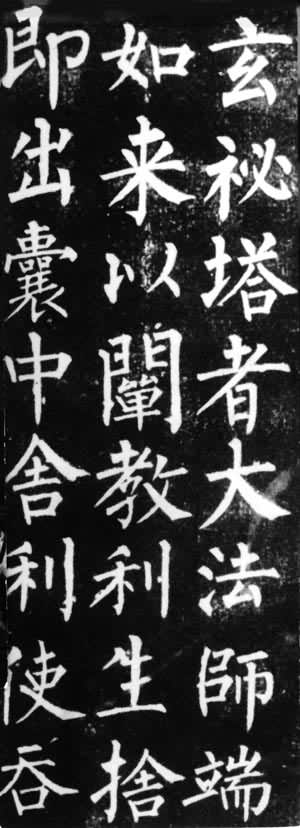 玄祕塔者大法師端
如来以闡教利生捨
即出囊中舎利使吞